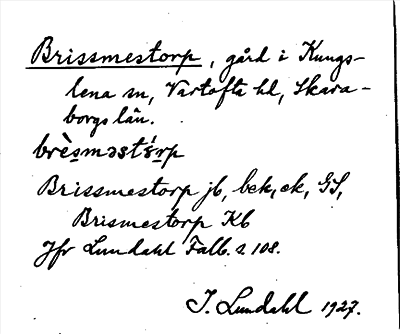 Brissmestorp, gård i Kungs-
lena sn, Vartofta hd, Skara-
borgs län.
Brissmestorp jb, bck, ek, GS,
Brismestorp Kb
Jfr Lundahl Falb. s. 108.
I. Lundahl 1927.